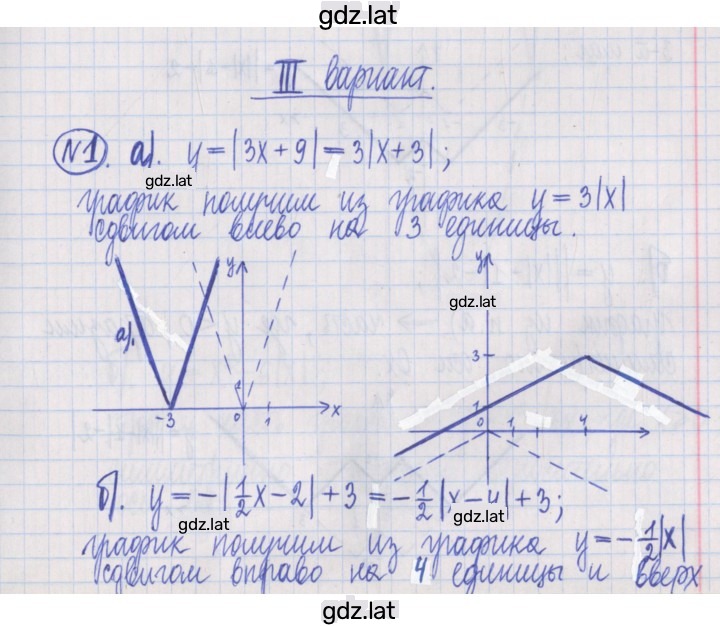 gdz.lat
III вариант.
№1. а). y = |3x + 9| = 3|x + 3|;
gdz.lat
график получим из графика y = 3|x|
сдвигом влево на 3 единицы.
y y
а).
gdz.lat
3
1
-3 0 1 x
0 1 4
б). y = -|1/2x - 2| + 3 = -1/2|x - 4| + 3;
gdz.lat gdz.lat
график получим из графика y = -1/2|x|
сдвигом вправо на 4 единицы и вверх
gdz.lat